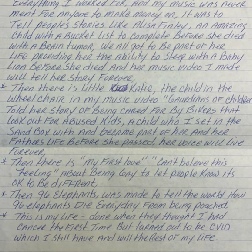 Everything I worked for, and my music was never
ment for anyone to make money on, it was to
Tell Peoples Stories like Alisa Finley, an amazing
Child with a Bucket List to complete Before she died
with a Brain Tumor, we all got to Be part of her
Life Bounding her the ability to sleep with a Baby
Lion Before she died and her music video I made
will tell her story Forever.
* Then there is little Kalie, the child in the
wheelchair in my music video "Guardians of Children"
Told her story of Being Cared For By Bikers that
Look out For Abused Kids, a child who I set in the
Sand Box with and become part of her and her
Fathers Life Before she passed, her voice will live
Forever
* Then there is "My First Love" "Can't believe this
Feeling" meant Being way to let people know its
OK to Be different.
* Then 96 Elephants was made to tell the world how
96 elephants Die Everyday From Being poached
* This is my life - done when they thought I had
Cancer the First Time But turned out to be COVID
which I still have and will the Rest of my life